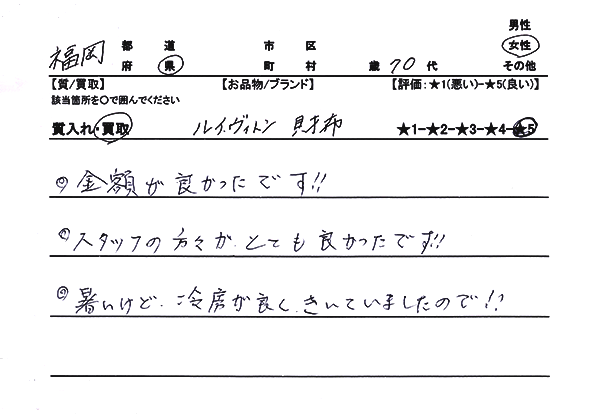 男性
福岡 都道府県 市区町村 歳 70代 女性
その他
【質/買取】 【お品物/ブランド】 【評価:★1(悪い)-★5(良い)】
該当箇所を○で囲んでください
質入れ・買取 ルイ・ヴィトン 財布 ★1-★2-★3-★4-★5
◎金額が良かったです!!
◎スタッフの方々が、とても良かったです!!
◎暑いけど、冷房が良く、きいていましたので!!